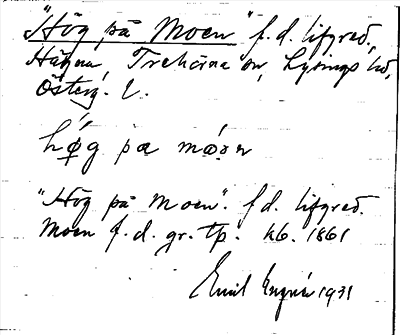 "Hög på Moen" f.d. lifgred.,
Hägna Trehörna sn, Lysings hd,
Österg. l.
hǿg pa móən
"Hög på Moen". f.d. lifgred.
Moen f.d. gr. tp. kb. 1861
Emil 1931